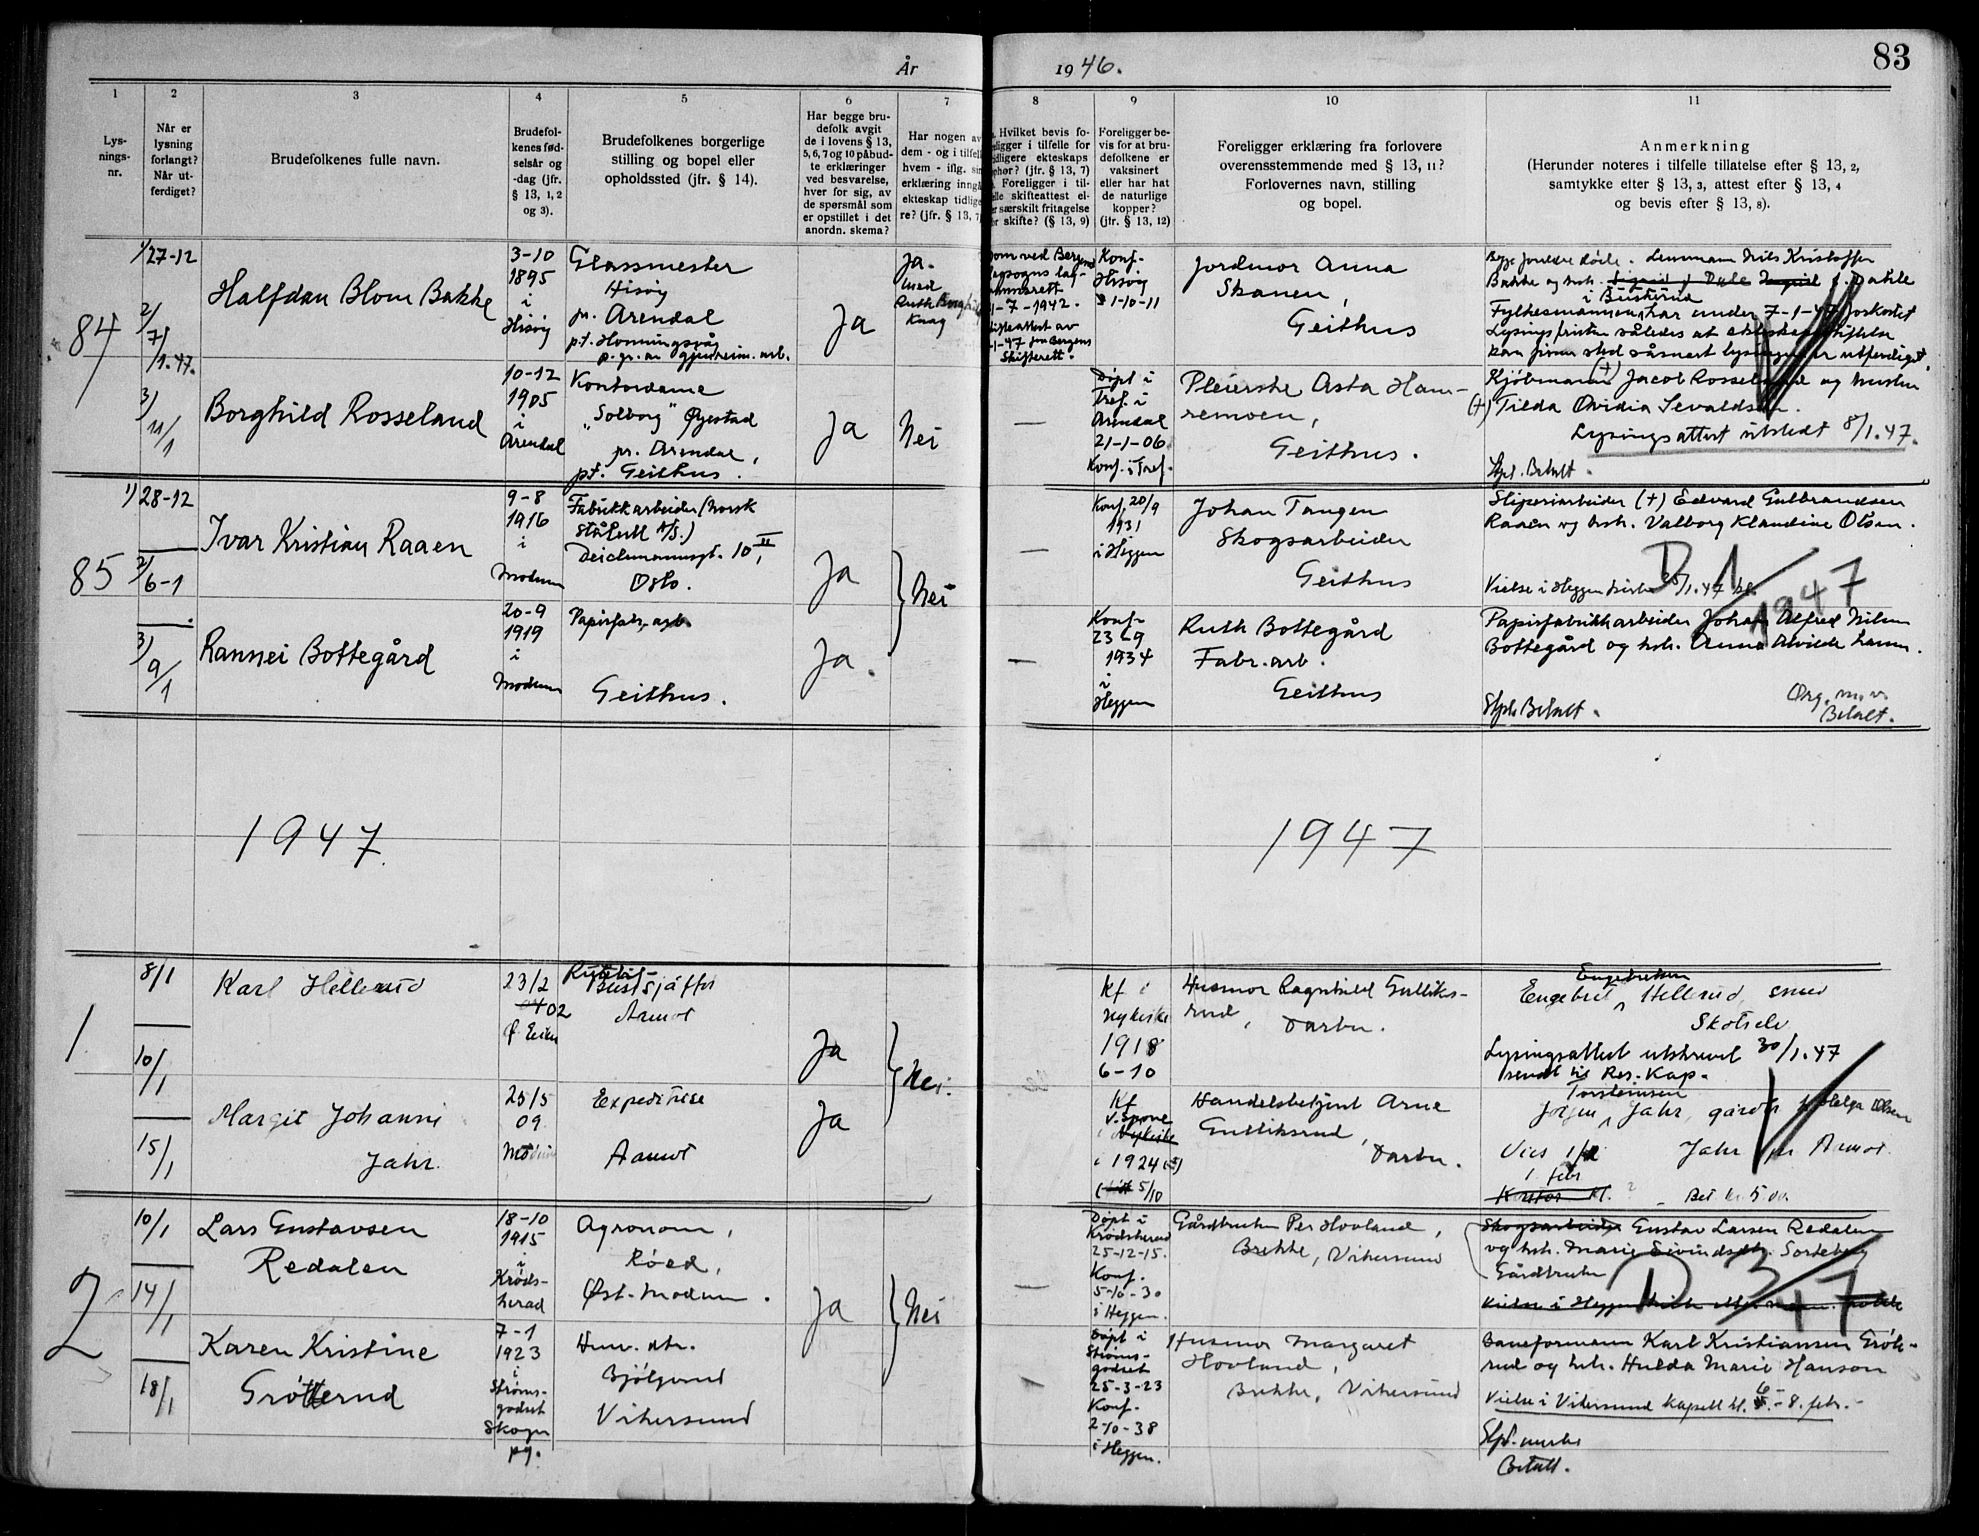 År 1946.
83
1 2 3 4 5 6 7 8 9 10 11
Lys-
nings-
nr.
Når er
lysning
forlangt?
Når ut-
ferdiget?
Brudefolkenes fulle navn.
Brudefol-
kenes fød-
selsår og
-dag (jfr.
§ 13, 1, 2
og 3).
Brudefolkenes borgerlige
stilling og bopel eller
opholdssted (jfr. § 14).
Har begge bru-
defolk avgit
de i lovens § 13,
5, 6, 7 og 10 påbud-
te erklæringer
ved besvarelse,
hver for sig, av
de spørsmål som
er opstillet i det
anordn. skema?
Har nogen av
dem - og i tilfell
hvem - iflg. sin
erklæring inngå
ekteskap tidlige
re? (jfr. § 13, 7
. Hvilket bevis fo-
eligger i tilfelle for
idligere ekteskaps
phør? (jfr. § 13, 7)
. Foreligger i til-
elle skifteattest el-
er særskilt fritagelse
or skifte? (§ 13, 9)
Foreligger be-
vis for at bru-
defolkene er
vaksinert
eller har hat
de naturlige
kopper?
(jfr. § 13, 12)
Foreligger erklæring fra forlovere
overensstemmende med § 13, 11?
Forlovernes navn, stilling
og bopel.
Anmerkning
(Herunder noteres i tilfelle tillatelse efter § 13, 2,
samtykke efter § 13, 3, attest efter § 13, 4
og bevis efter § 13, 8).
84
1/ 27-12
2/
7/
/1.47.
3/
11/1
Halfdan Blom Bakke
3-10
1895
i
Hisøy
Glassmester
Hisøy
pr. Arendal
pt. Honningsvåg
p.gr.av gjenreisn. arb.
Ja
Ja.
med
Ruth Borghild
Kaag
Dom ved Bergens
1-7-1942.
Skifteattest av
1-47 fra Bergens
Skifterett.
Konf.
Hisøy
1-10-11
Jordmor Anna
Skanen,
Geithus
Begge foreldre døde. Lensmann Nils Kristoffer
Bakke og hstr. f. Dahle
i Buskerud
Fylkesmannen har under 7-1-47 forkortet
Lysingsfristen således at ekteskapsstiftelse
kan finne sted såsnart lysingen er utferdiget
Borghild Rosseland
10-12
1905
i
Arendal
Kontordame
"Solborg" Øyestad
pr. Arendal,
pt. Geithus.
Ja
Nei
—
Døpt i
Tref. i
Arendal
21-1-06
Konf. i Tref.
Pleierske Asta Ham-
remoen,
Geithus.
Kjøbmann (+) Jacob Rosseland og hustru
(+) Tilda Ovidia Sevaldsen.
Lysingsattest utstedt 8/1.47.
Stpl. Betalt.
85
1/ 28-12
2/
6-1
3/
9/1
Ivar Kristian Raaen
9-8
1916
i
Modum
Fabrikkarbeider (Norsk
Stålull A/S.)
Deichmannsgt. 10 II,
Oslo.
Ja
Nei
—
Konf. 20/9
1931
i Heggen
Johan Tangen
Skogsarbeider
Geithus
Sliperiarbeider (+) Edvard Gulbrandsen
Raaen og hstr. Valborg Klaudine Olsen.
D 1/1947
Vielse i Heggen kirke 25/1.47 kl.
Rannei Bottegård
20-9
1919
i
Modum
Papirfabr. arb.
Geithus.
Ja.
—
Konf.
23-9
1934
i
Heggen
Ruth Bottegård
Fabr. arb.
Geithus
Papirfabrikkarbeider Johan Alfred Nilsen
Bottegård og hstr. Anna Alvilde
Stpl. Betalt.
Org. m.v.
Betalt.
1947
1947
1
8/1
10/1
15/1
Karl Hellerud
23/2
02
Ø. Eiker
Rutebil-
sjåffør
Aamot
Ja
Nei.
Kf i
Nykirke
1918
6-10
Husmor Ragnhild Gulliks-
rud, Darbu.
Engebretsen
Engebret Hellerud, smed
Skotselv
Lysingsattest utskrevet 30/1.47
sendt til Res. Kap.
Margit Johanne
Jahr.
25/5
09.
Modum
Expeditrise
Aamot
Ja
Kf
V. Spone
Nykirke
i 1924
5/10
Handelsbetjent Arne
Gulliksrud,
Darbu.
Torstensen
Jørgen Jahr, gårdbr. Helga Olsen
Vies Jahr pr Aamot
1 febr
Kontor kl.
Bet kr. 5.00
2
10/1
14/1
18/1
Lars Gustavsen
Redalen
18-10
1915
i
Krøds-
herad
Agronom,
Røed,
Øst-Modum.
Ja
Nei
—
Døpt i
Krødsherad
25-12-15.
Konf.
5-10-30
i Heggen.
Gårdbruker Per Hovland,
Brekke, Vikersund
Skogsarbeider Gustav Larsen Redalen
og hstr. Marie Eivindsdtr. Sorteberg
Gårdbruker
D 3/47
Vielse i Heggen kirke
Karen Kristine
Grøtterud
7-1
1923
i
Strøms-
godset
Skoger
pg.
Hus. dtr.
Bjølgerud
Vikersund
—
Døpt i
Strøms-
godset
25-3-23
Konf.
2-10-38
i Heggen.
Husmor Margaret
Hovland,
Brekke, Vikersund
Baneformann Karl Kristiansen Grøte-
rud og hstr. Hulda Marie Hanson
Vielse i Vikersund kapell kl. 6 - 8. febr.
Stpl. merke
Betalt.